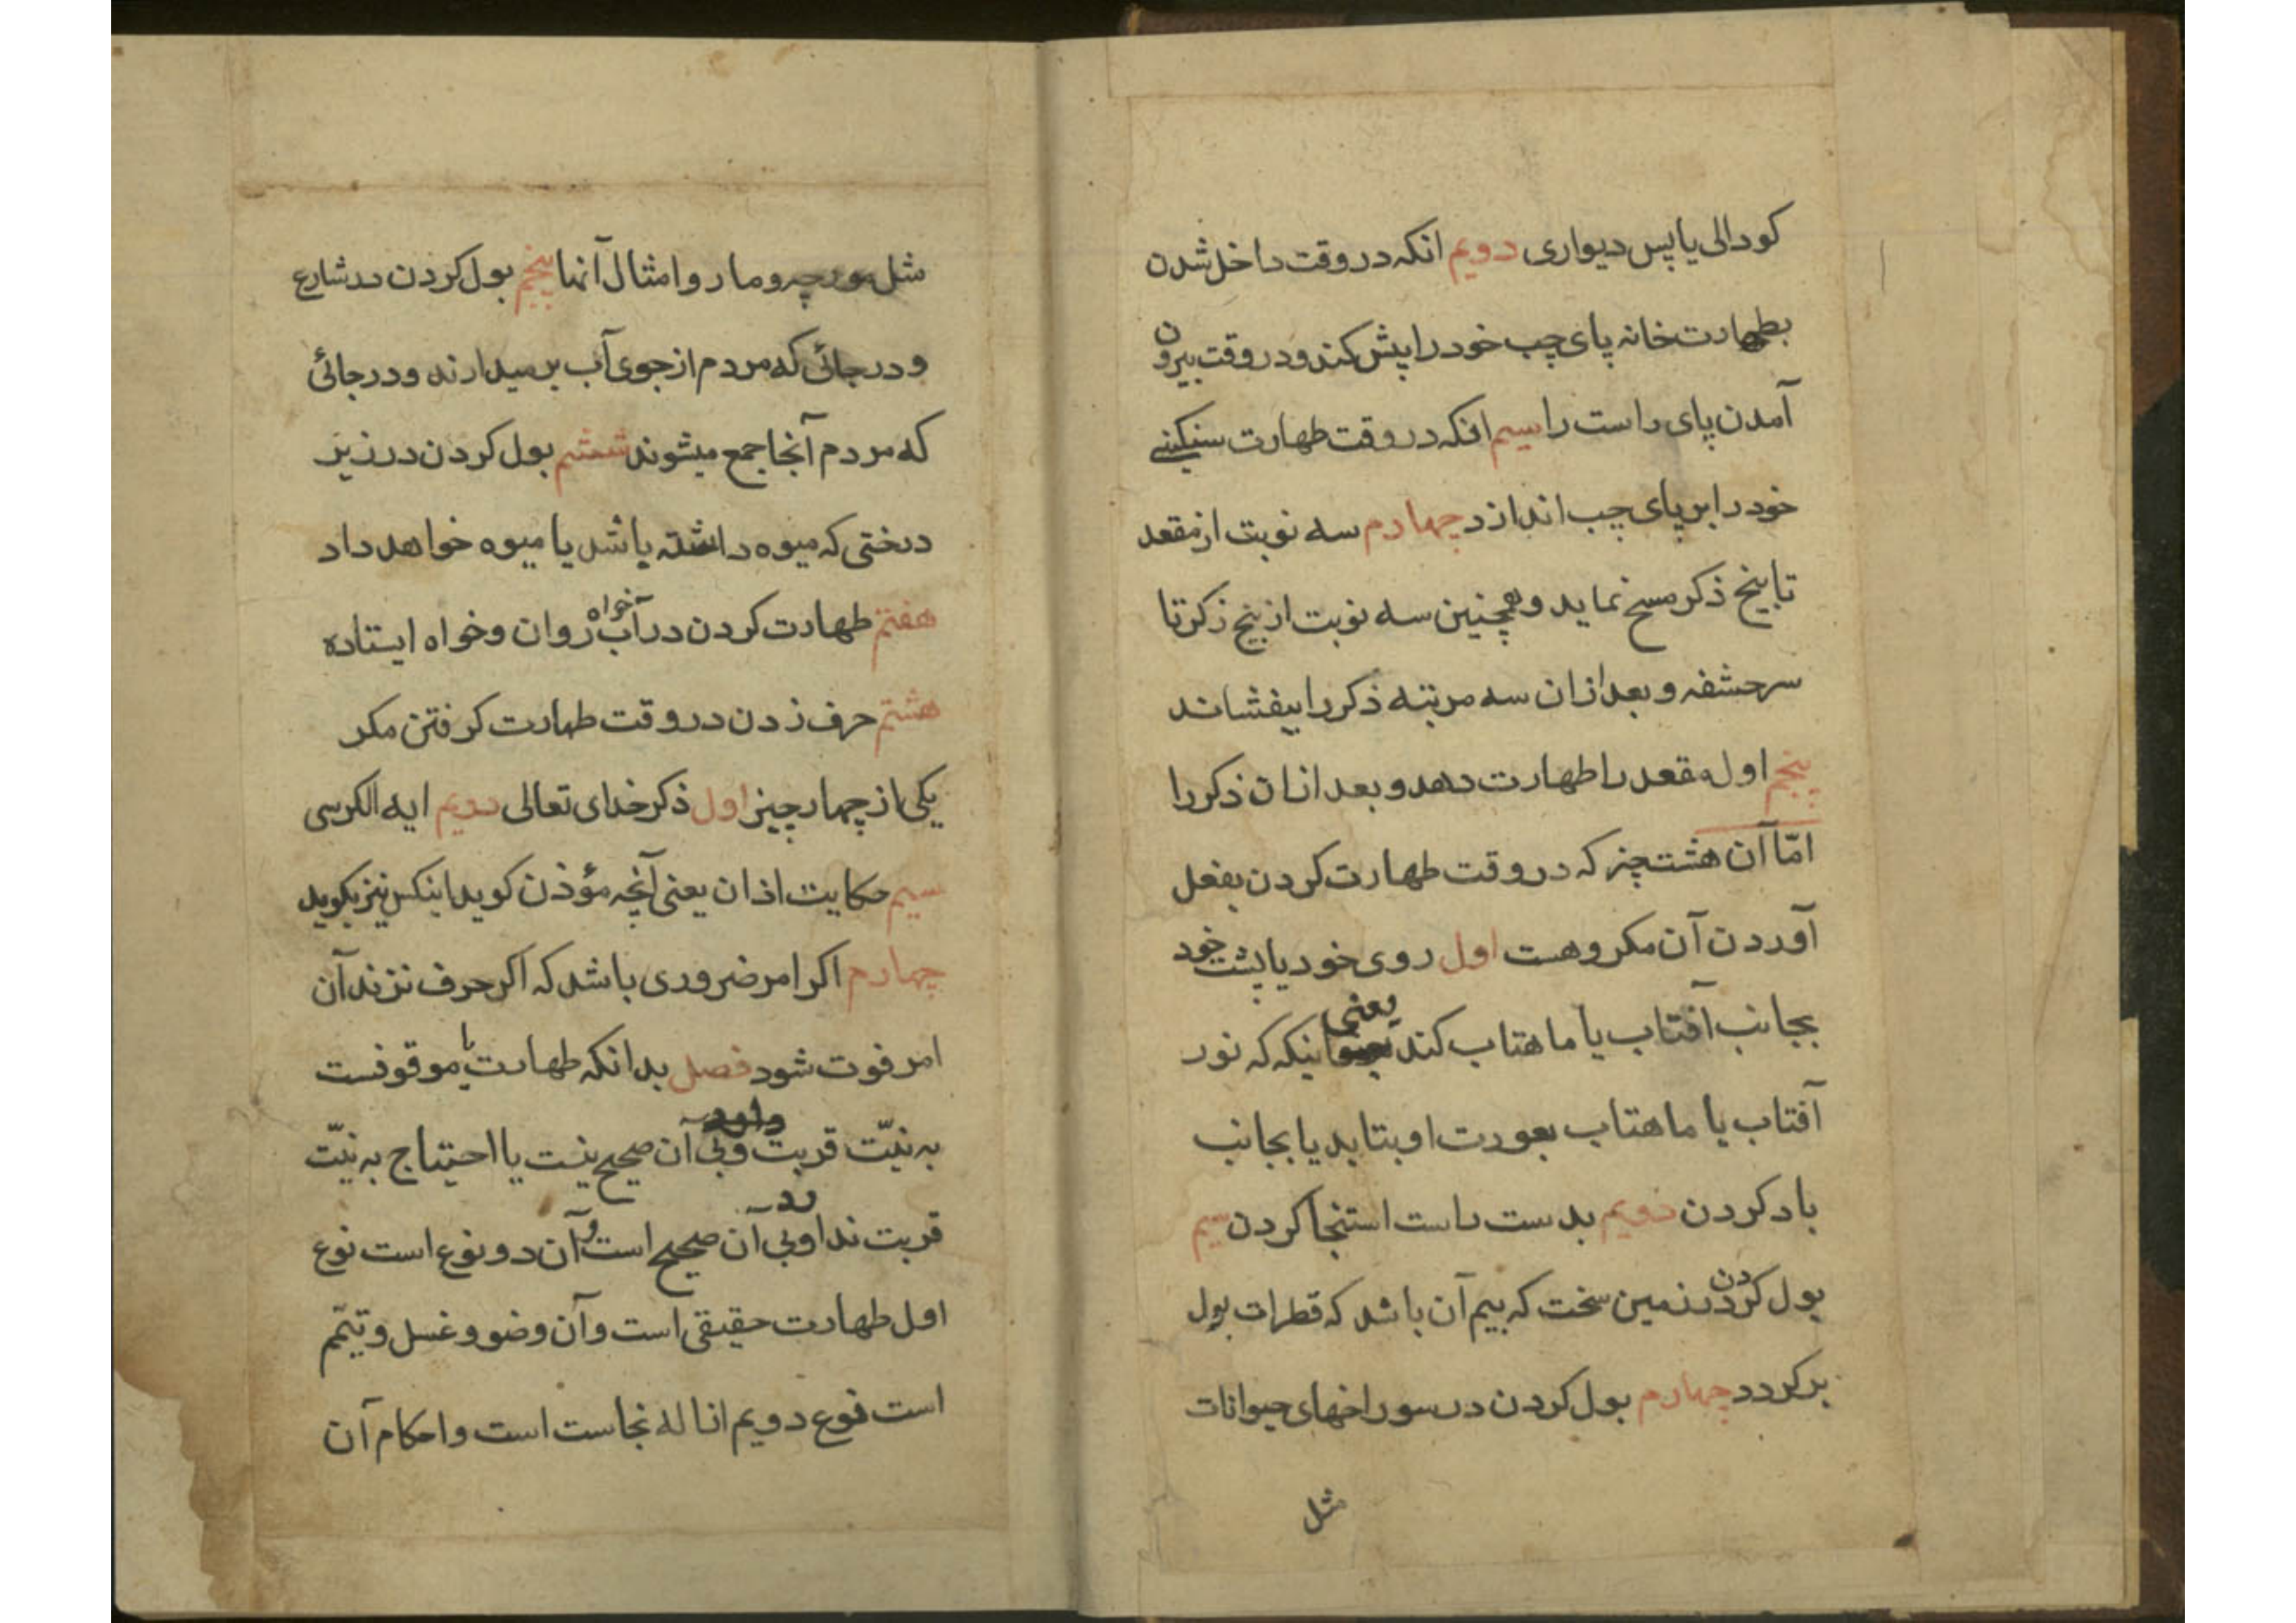 کودالی یا پس دیواری دویم انکه در وقت داخل شدن
بطهارت خانه پای چب خود را پیش کند و در وقت بیرون
آمدن پای راست را سیم انکه در وقت طهارت سنکینی
خود را بر پای چب اندازد چهارم سه نوبت از مقعد
تا بیخ ذکر مسح نماید و همچنین سه نوبت از بیخ ذکر تا
سر حشفه و بعد ازان سه مرتبه ذکر را بیفشاند
پنجم اول مقعد را طهارت دهد و بعد ازان ذکر را
امّا آن هشت چیز که در وقت طهارت کردن بفعل
آوردن آن مکروهست اول روی خود یا پشت خود
بجانب آفتاب یا ماهتاب کند یعنی اینکه که نور
آفتاب یا ماهتاب بعورت او بتابد یا بجانب
باد کردن دویم بدست راست استنجا کردن سیم
بول کردن در زمین سخت که بیم آن باشد که قطرات بول
بر کردد چهارم بول کردن در سوراخهای حیوانات
مثل
مثل مورچه و مار و امثال آنها پنجم بول کردن در شارع
و در جائی که مردم از جوی آب بر میدارند و در جائی
که مردم آنجا جمع میشوند ششم بول کردن در زیر
درختی که میوه داشته باشد یا میوه خواهد داد
هفتم طهارت کردن در آب خواه روان و خواه ایستاده
هشتم حرف زدن در وقت طهارت کرفتن مکر
یکی از چهار چیز اول ذکر خدای تعالی دویم ایه الکرسی
سیم حکایت اذان یعنی آنچه مؤذن کوید اینکس نیز بکوید
چهارم اکر امر ضروری باشد که اکر حرف نزند آن
امر فوت شود فصل بدانکه طهارت یا موقوفست
به نیّت قربت و بی آن صحیح نیست یا احتیاج به نیّت
قربت ندارد و بی آن صحیح است و آن دو نوع است نوع
اول طهارت حقیقی است و آن وضو و غسل و تیمّم
است نوع دویم ازاله نجاست است و احکام آن